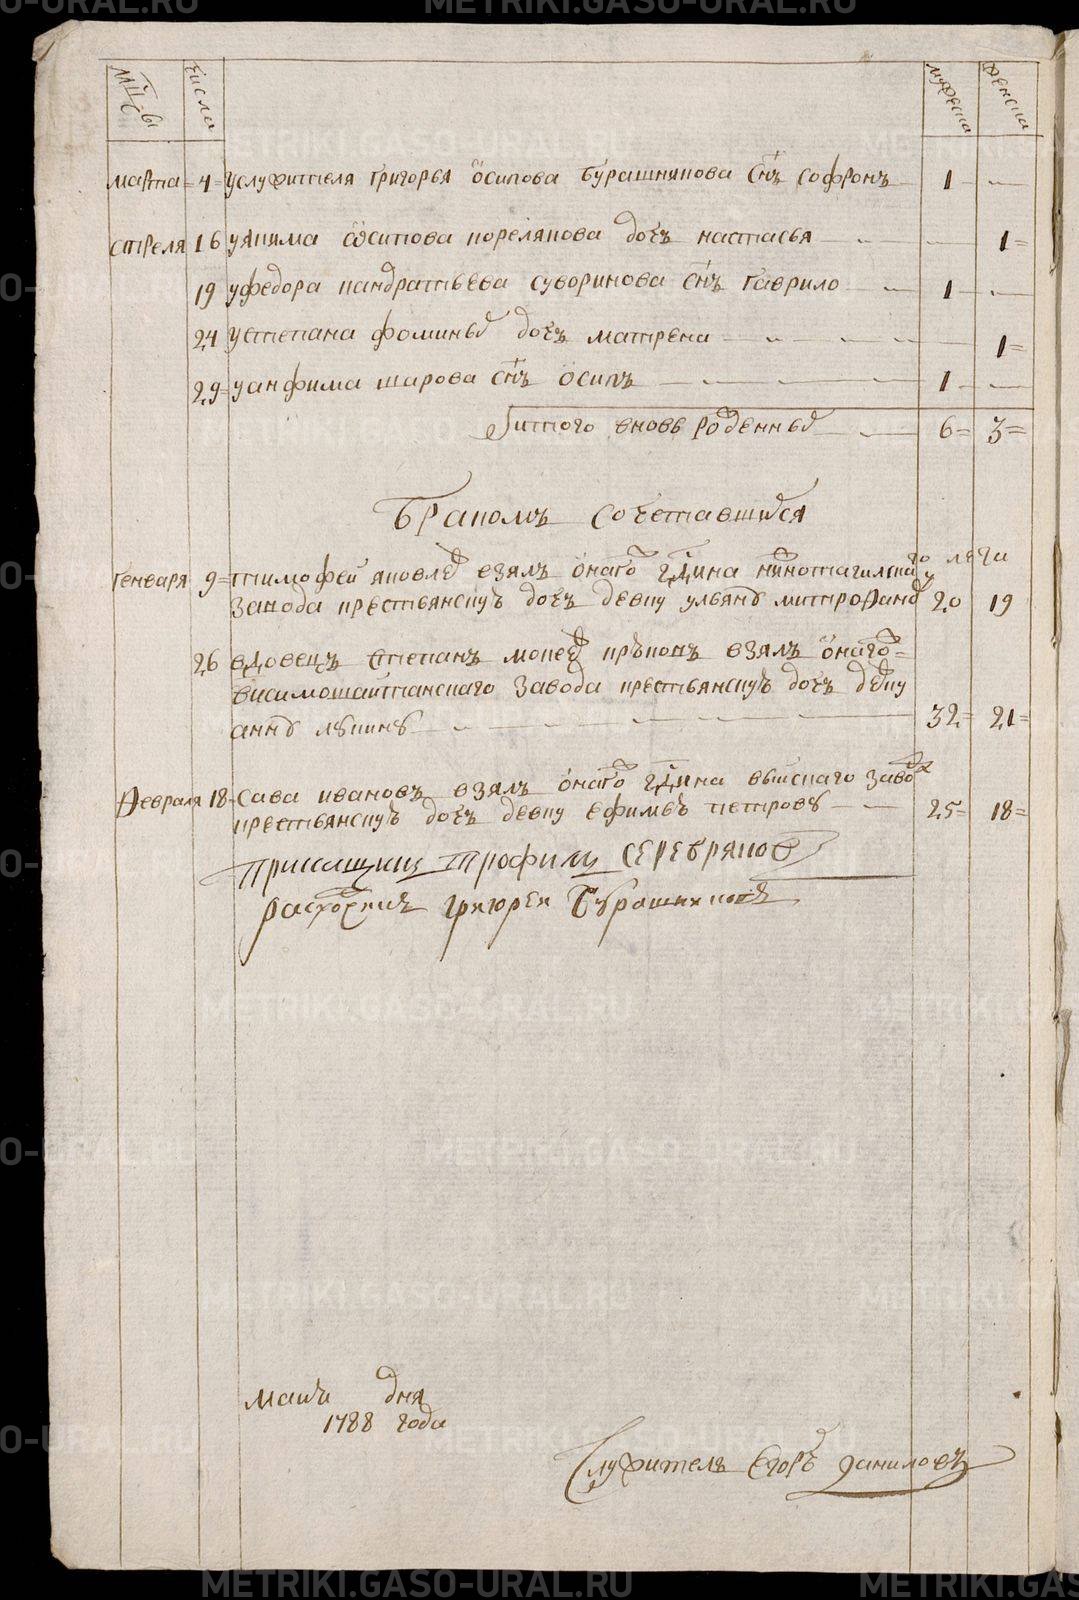 мцы числа мужеска женска
марта 4 У служителя григорья осипова бурашникова снъ софронъ 1
апреля 16 у якима осипова корелякова дочъ настасья 1
19 у федора кандратьева суворинова снъ гаврило 1
24 у степана фоминых дочъ матрена 1
29 у анфима шарова снъ осипъ 1
итого вновь роденных 6 3
Бракомъ сочетавшихся
лета
генваря 9 тимофей яковлев взялъ онаго гдина нижнотагилскаго
завода крестьянскую дочъ девку ульяну митрофанову 20 19
26 вдовецъ степанъ мокеев взялъ онаго
висимошайтанскаго завода крестьянскую дочъ девку
анну 32 21
февраля 18 Сава ивановъ взялъ онаго гдина выйскаго завода
крестьянскую дочъ девку ефимью петрову 25 18
Прикащикъ Трофимъ Серебряков
расхотчикъ григореи Бурашниковъ
маия дня
1788 года
Служитель Егоръ даниловъ
METRIKI.GASO-URAL.RU